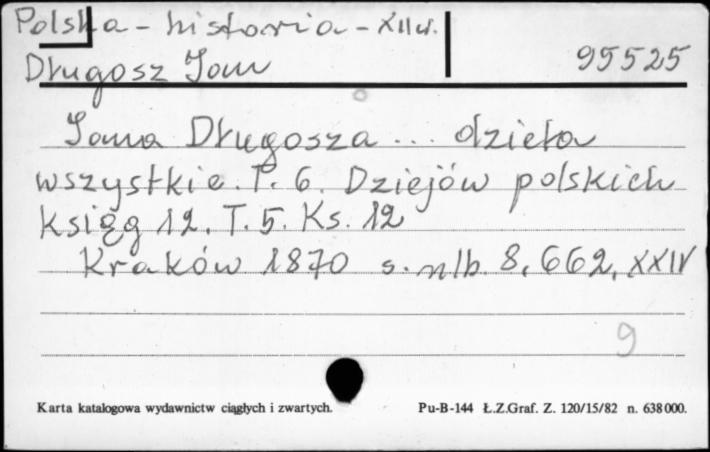 Polska - historia - XII w.
Długosz Jan 95525
Jana Długosza ... dzieła
wszystkie. T. 6. Dziejów polskich
ksiąg 12. T. 5. Ks. 12
Kraków 1870 s. nlb. 8, 662, XXIV
9
Karta katalogowa wydawnictw ciągłych i zwartych. Pu-B-144 Ł.Z.Graf. Z. 120/15/82 n. 638000.